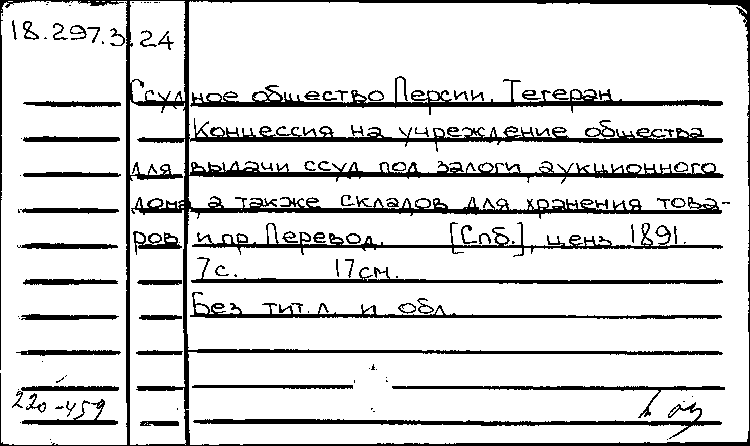 18.297.3.24
Ссудное общество Персии. Тегеран.
Концессия на учреждение общества
для выдачи ссуд под залоги, аукционного
дома, а также складов для хранения това-
ров и пр. Перевод. [Спб.], ценз. 1891.
7с. 17см.
Без тит.л. и обл.
220-459